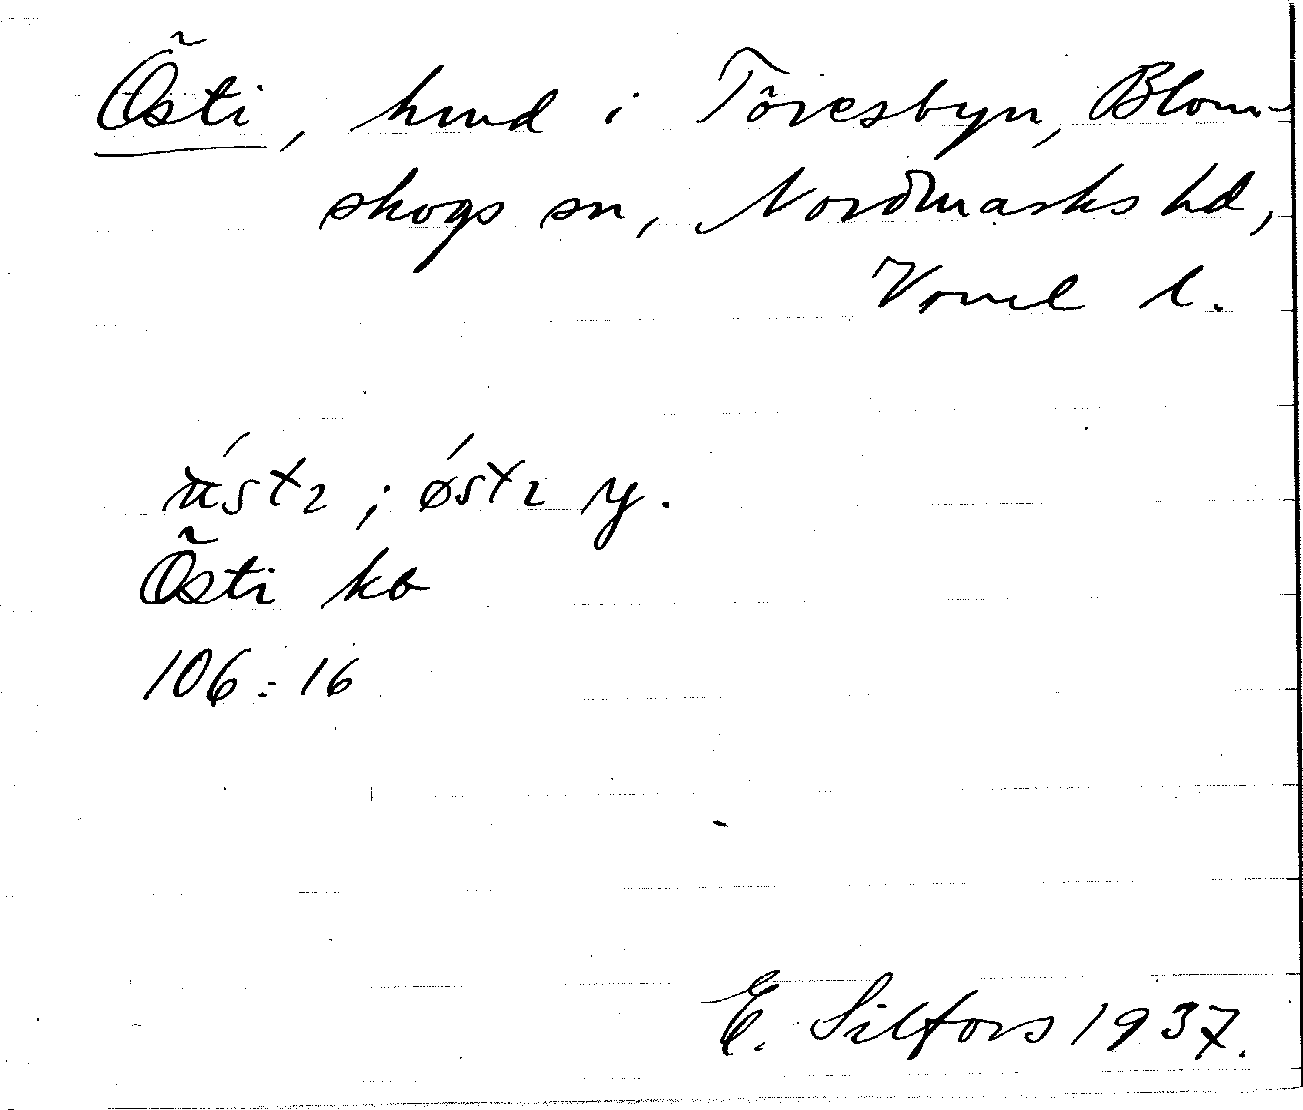 Östi, hmd i Töresbyn, Blom-
skogs sn, Nordmarks hd,
Vrml l.
östɩ y.
Östi kb
106:16
E. Silfors 1937.